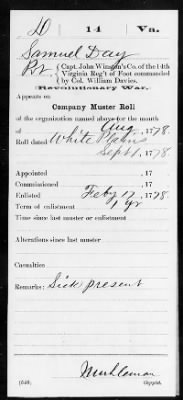 D 14 Va.
Samuel Day
Pvt, Capt. John Winston's Co. of the 14th
Virginia Reg't of Foot commanded
by Col. William Davies.
Revolutionary War.
Appears on
Company Muster Roll
of the organization named above for the month
of Aug, 1778.
Roll dated White Plains
Sept 1, 1778.
Appointed 17
Commissioned 17
Enlisted Feby 17, 1778.
Term of enlistment 1 yr
Time since last muster or enlistment
Alterations since last muster
Casualties
Remarks: Sick present
Copyist.